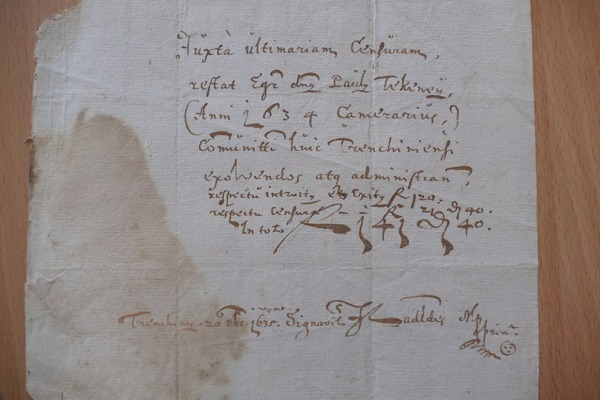 Juxtà ultimariam Censuram,
restat Egr dnꝰ Pauly Tekeney,
(Anni 1634 Camerarius,)
Comunitti huic Trenchiniensi
exolvendos atq administran,
respectu introity et Exity f 120.
respectu Censura f 21 d 40.
In toto f 141 d 40.
Trenchiny 20 1635. Signavit